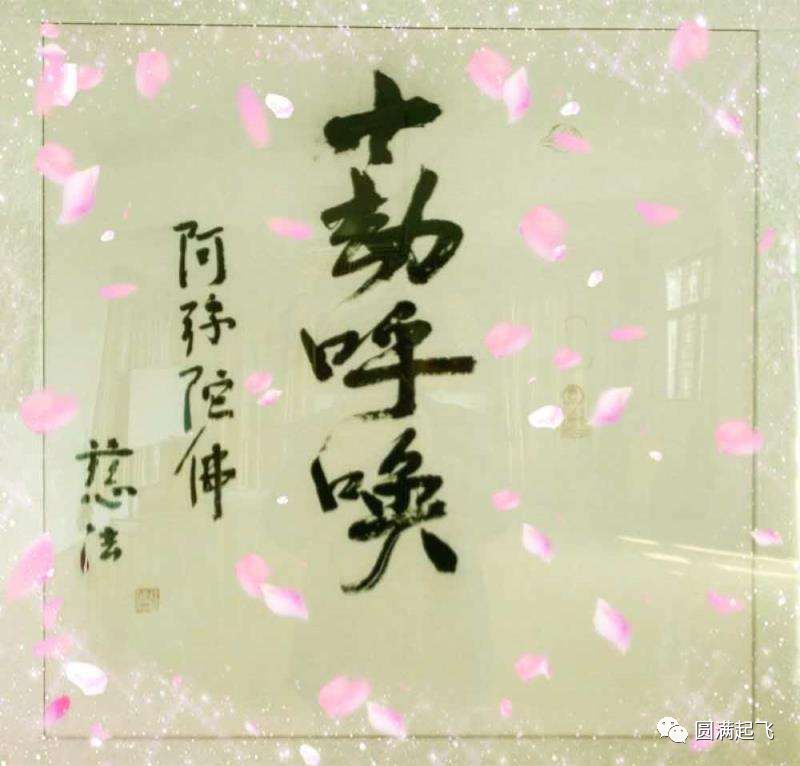 十劫呼唤
阿弥陀佛
慈法
圆满起飞